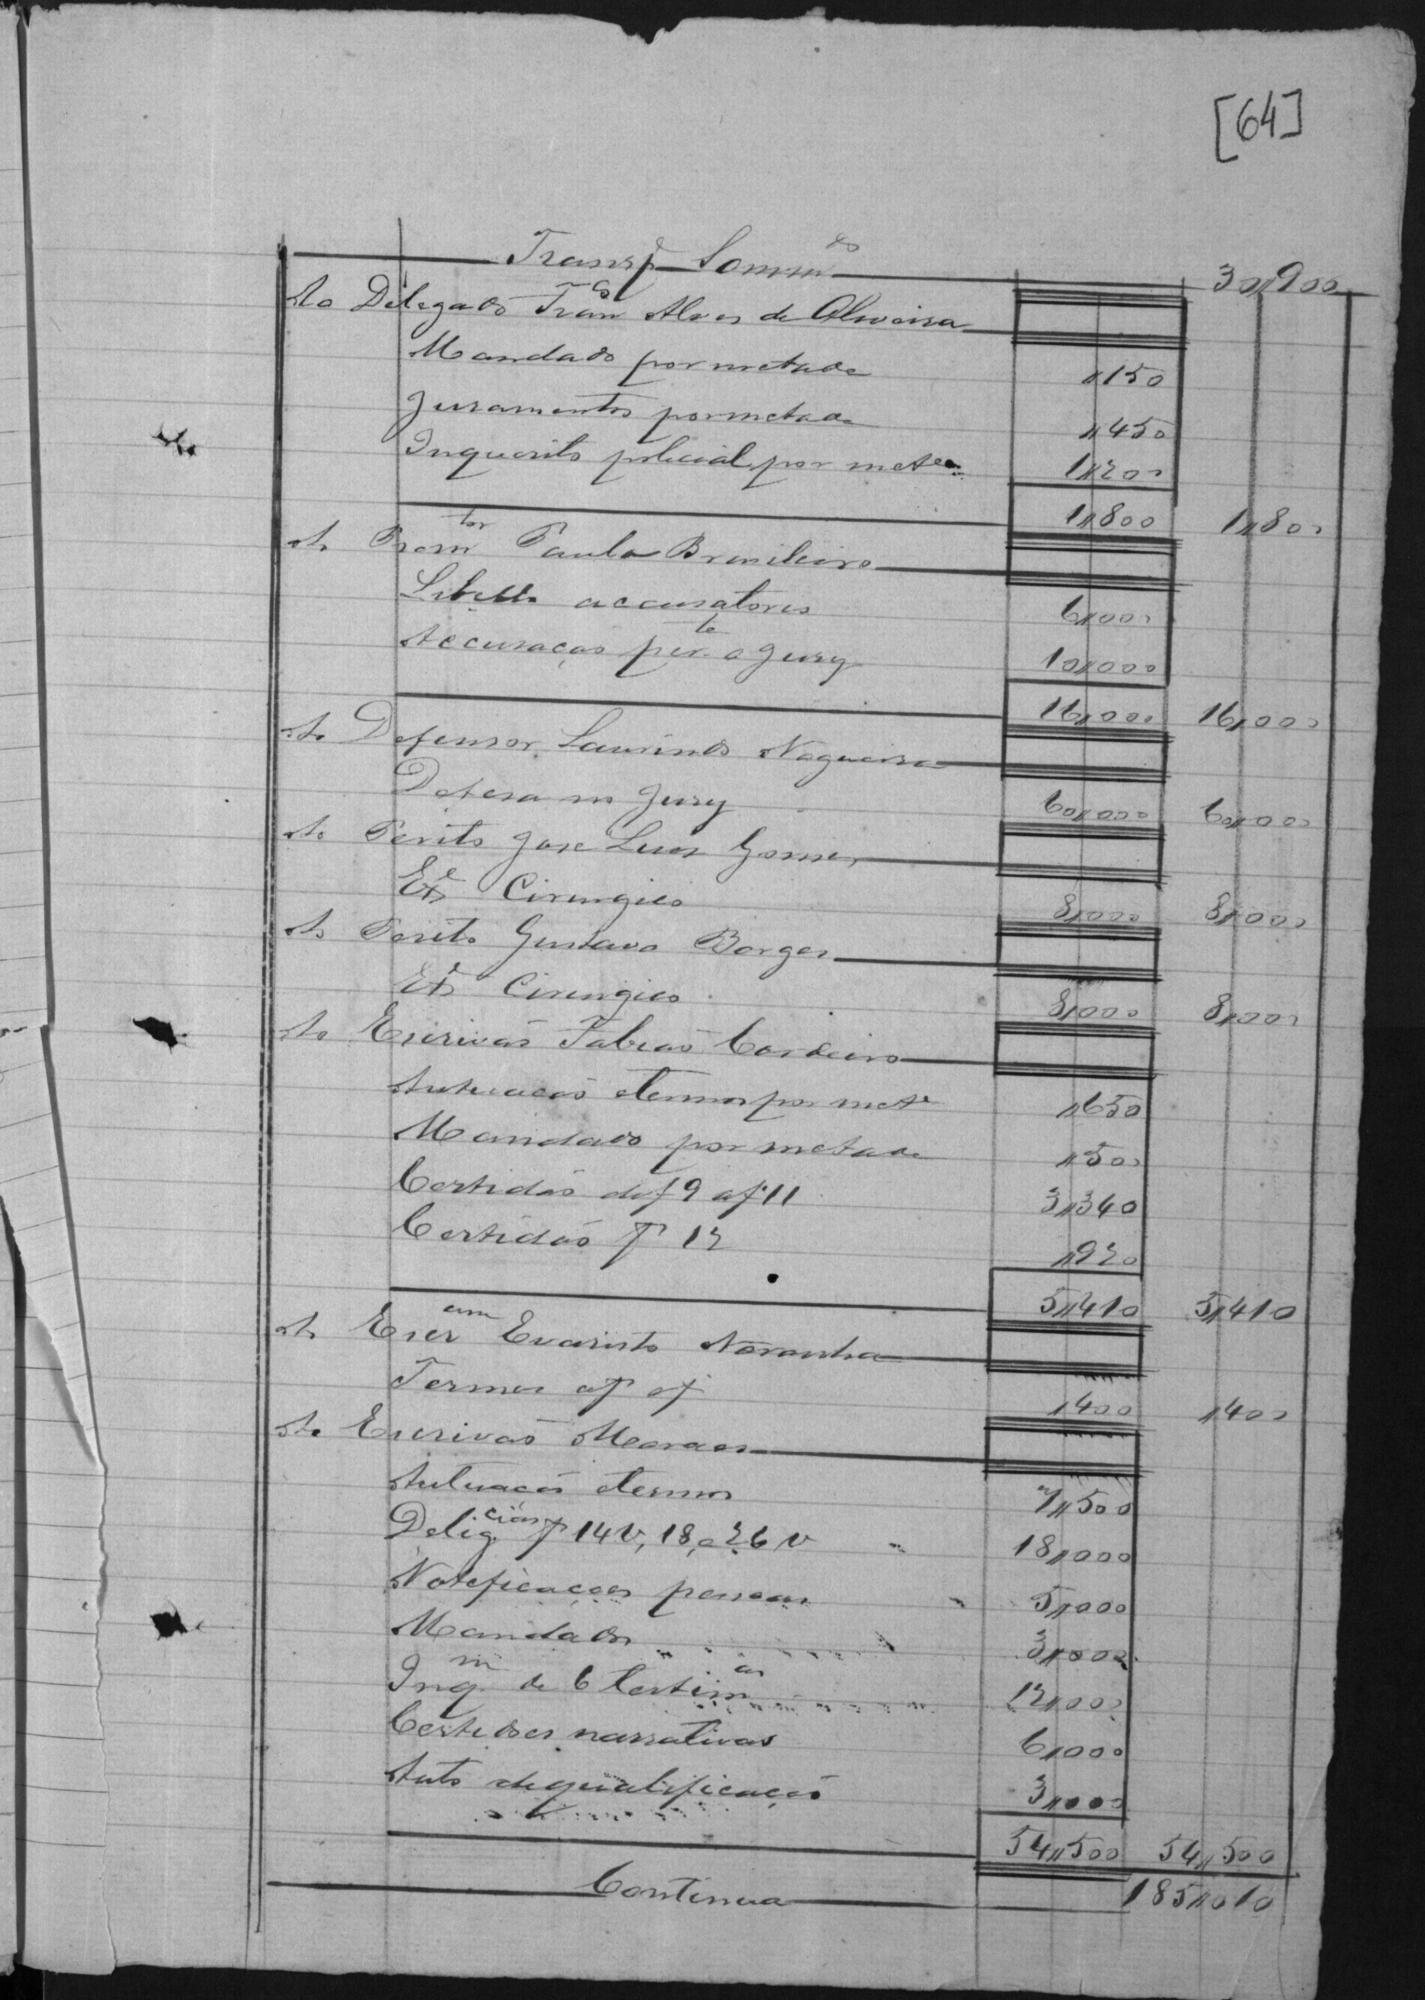 [64]
Transpe Sommdo 30,,900
Ao Delegado Franco Alves de Oliveira
Mandado por metade ,,150
Juramentos por metade ,,450
Inquerito policial por mete 1,,200
1,,800 1,,800
Ao Promtor Paula Brasileiro
Libello accusatorio 6,,000
Accusação perte o Jury 10,,000
16,,000 16,,000
Ao Defensor Laurindo Nogueira
Defesa no Jury 60,,000 60,,000
Ao Perito Jose Luis Gomes
Ee Cirurgico 8,,000 8,,000
Ao Perito Gustavo Borges
Ee Cirurgico 8,,000 8,,000
Ao Escrivão Fabião Cordeiro
Autuacão e termos por mete ,,650
Mandado por metade ,,500
Certidão de f 9 a f 11 3,,340
Certidão f 12 ,,920
5,,410 5,,410
Ao Escram Evaristo Noronha
Termos ,,400 ,,400
Ao Escrivão Moraes
Autuacão e termos 7,,500
Deligcias f 14 v, 18, e 26 v 18,,000
Noteficacoes pessoas 5,,000
Mandados 3,,000
Inqm de 6 testimas 12,,000
Certidoes narrativas 6,,000
Auto de qualificacão 3,,000
54,,500 54,,500
Continua 185,,010